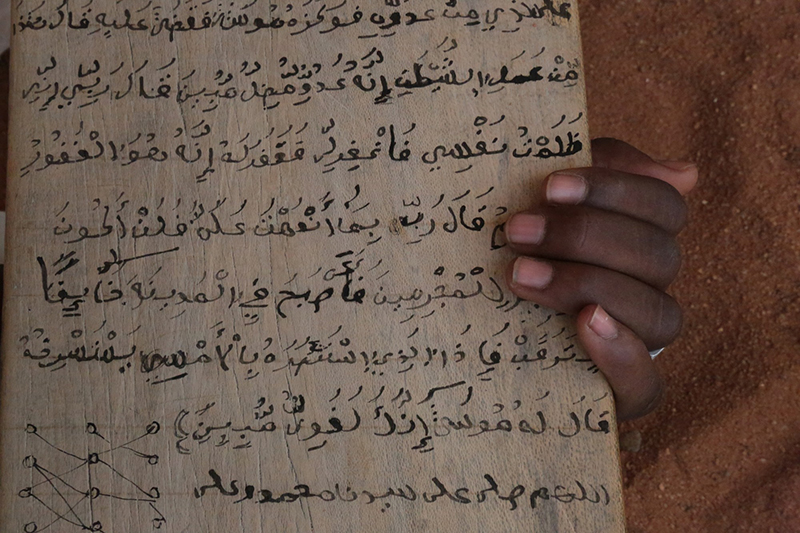 عَلَى الَّذِي مِنْ عَدُوِّهِ فَوَكَزَهُ مُوسَىٰ فَقَضَىٰ عَلَيْهِ قَالَ هَٰذَا
مِنْ عَمَلِ الشَّيْطَٰنِ إِنَّهُ عَدُوٌّ مُّضِلٌّ مُّبِينٌ قَالَ رَبِّ إِنِّي
ظَلَمْتُ نَفْسِي فَاغْفِرْ لِي فَغَفَرَ لَهُ إِنَّهُ هُوَ الْغَفُورُ
قَالَ رَبِّ بِمَا أَنْعَمْتَ عَلَيَّ فَلَنْ أَكُونَ
لِّلْمُجْرِمِينَ فَأَصْبَحَ فِي الْمَدِينَةِ خَائِفًا
يَتَرَقَّبُ فَإِذَا الَّذِي اسْتَنصَرَهُ بِالْأَمْسِ يَسْتَصْرِخُهُ
قَالَ لَهُ مُوسَىٰ إِنَّكَ لَغَوِيٌّ مُّبِينٌ
اللهم صل على سيدنا محمد وعلى